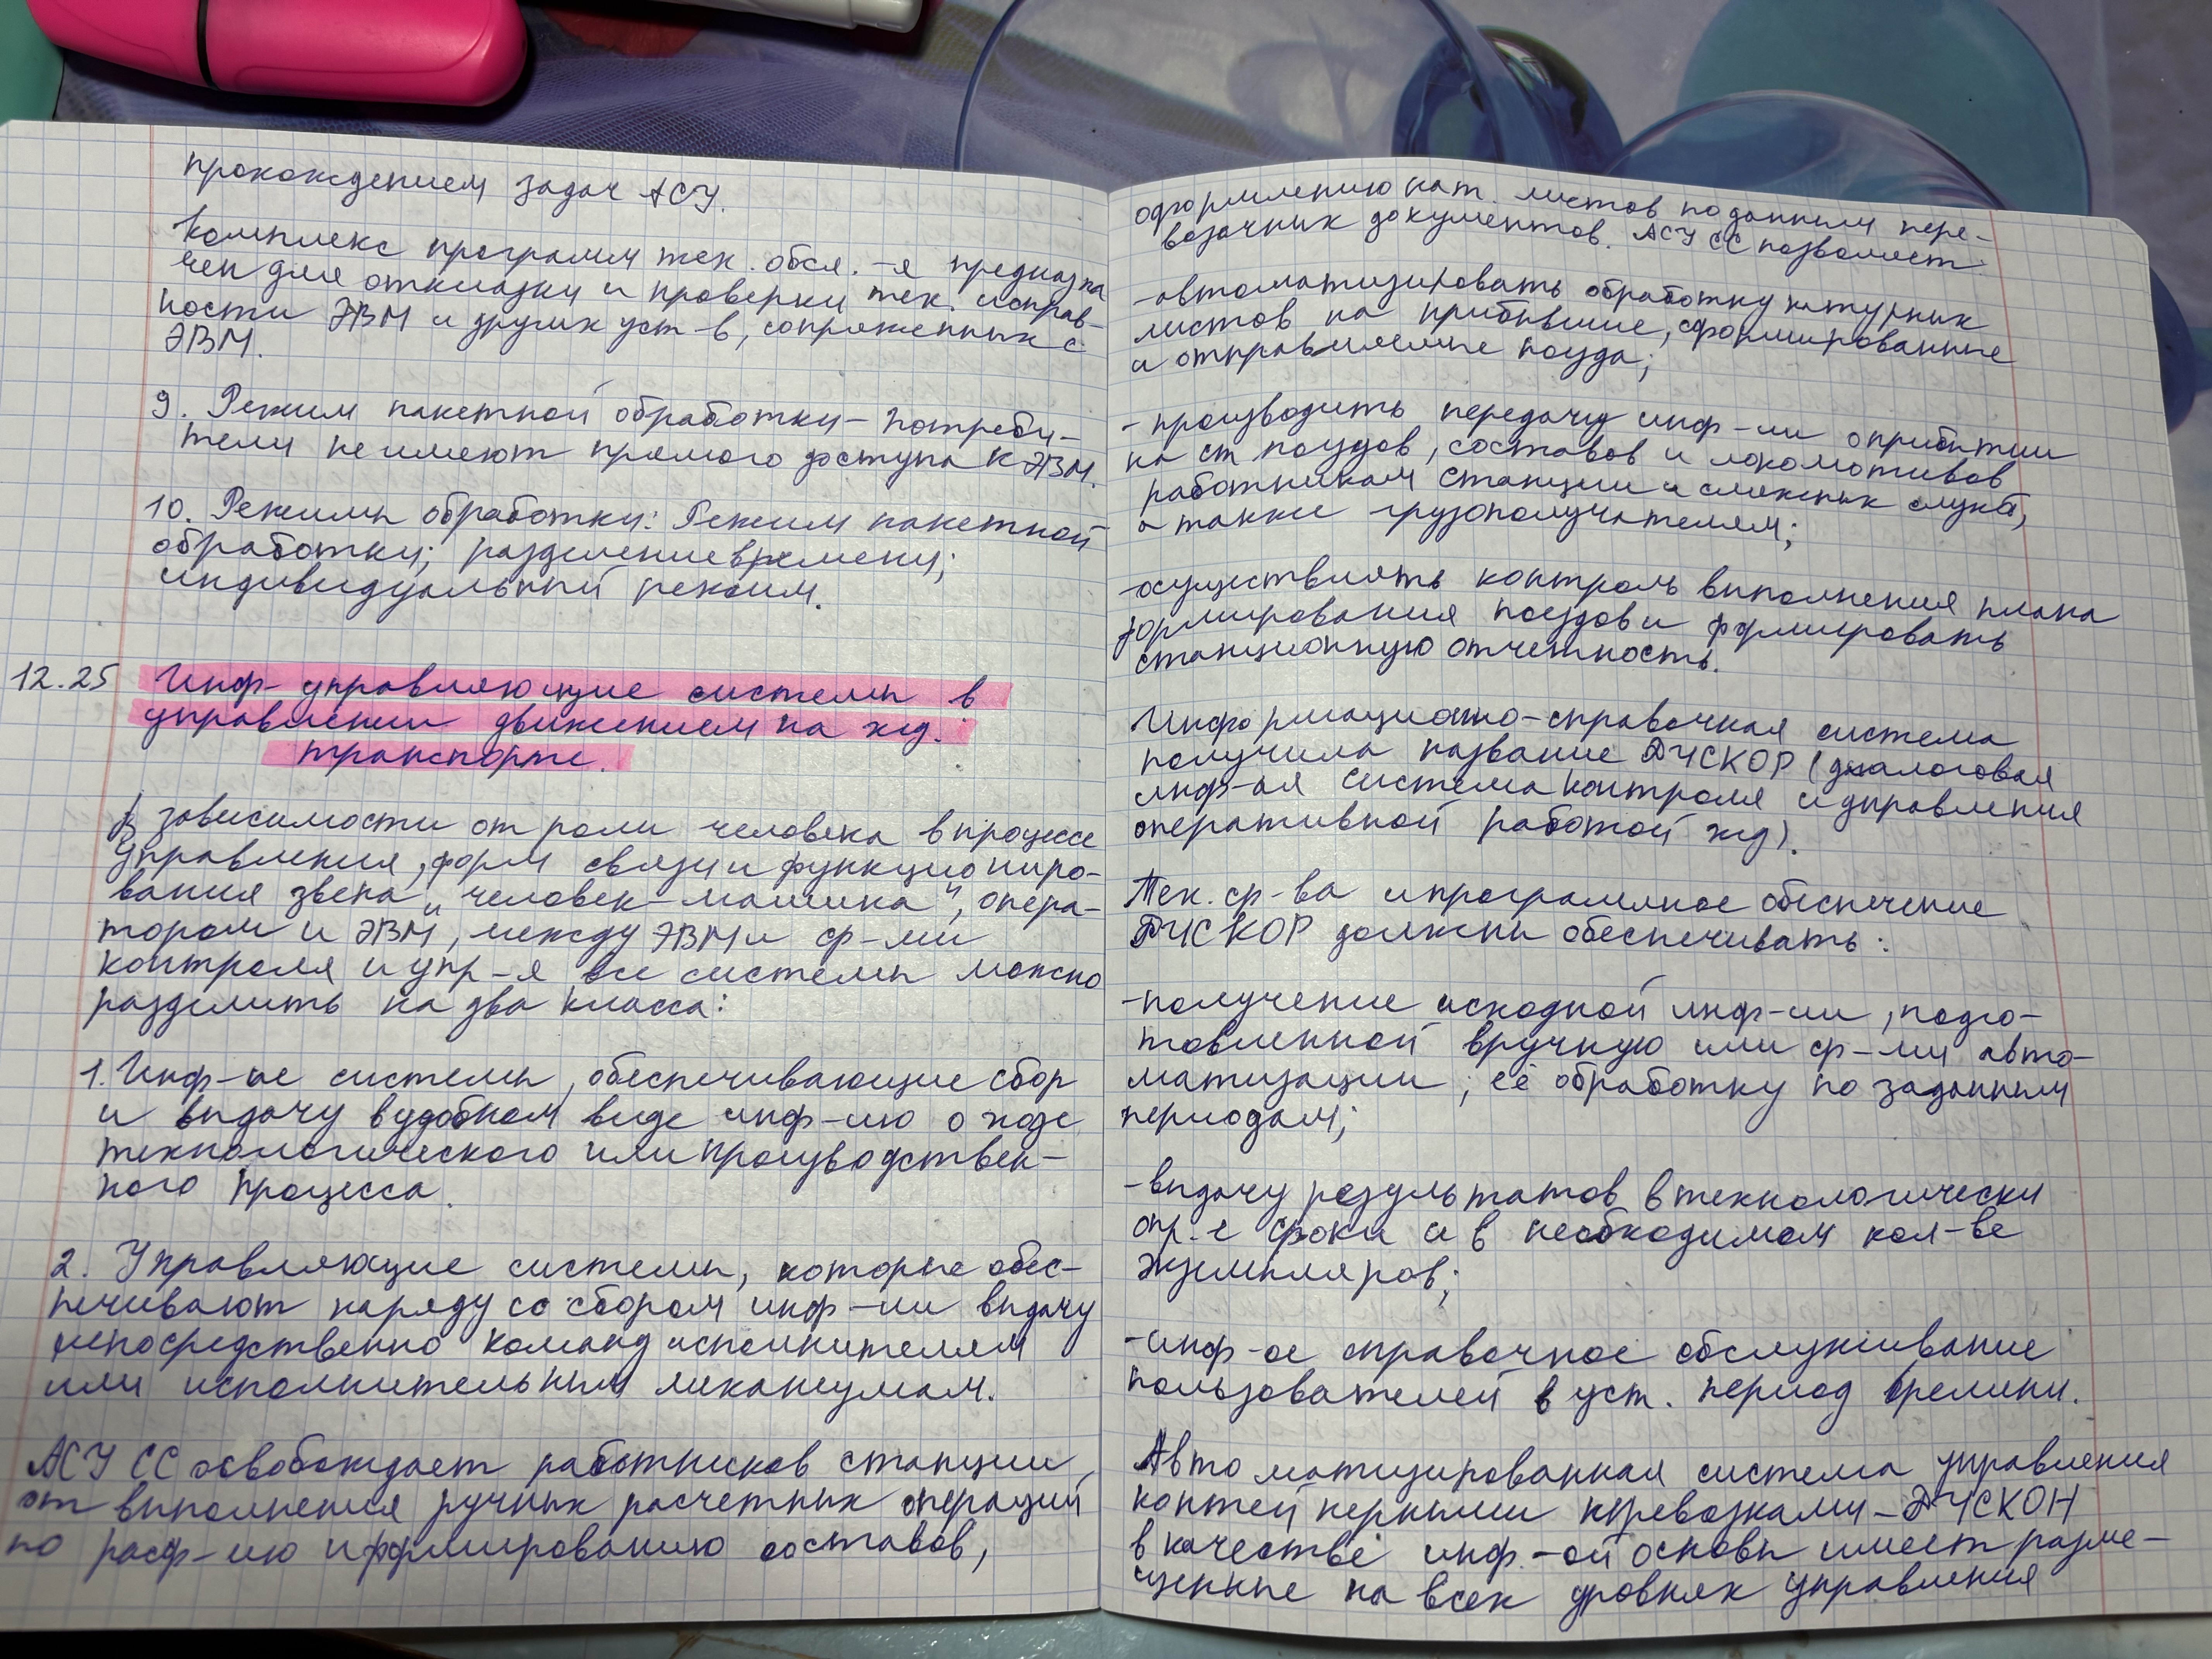 прохождением задач АСУ.
Комплекс программ тех. обсл.-я предназна
чен для откладки и проверки тех. исправ-
ности ЭВМ и других уст-в, сопряженных с
ЭВМ.
9. Режим пакетной обработки - потреби-
тели не имеют прямого доступа к ЭВМ.
10. Режимы обработки: Режим пакетной
обработки; разделение времени;
индивидуальный режим.
12.25 Инф- управляющие системы в
управлении движением на жд.
транспорте.
В зависимости от роли человека в процессе
управления, форм связи и функциониро-
вания звена „человек-машина", опера-
тором и ЭВМ, между ЭВМ и ср-ми
контроля и упр-я все системы можно
разделить на два класса:
1. Инф-ые системы, обеспечивающие сбор
и выдачу в удобном виде инф-ию о ходе
технологического или производствен-
ного процесса.
2. Управляющие системы, которые обес-
печивают наряду со сбором инф-ии выдачу
непосредственно команд исполнителям
или исполнительным механизмам.
АСУ СС освобождает работников станции
от выполнения ручных расчетных операций
по расф-ию и формированию составов,
оформлению нат. листов по данным пере-
возочных документов. АСУ СС позволяет
-автоматизировать обработку натурных
листов на прибывшие, сформированные
и отправляемые поезда;
-производить передачу инф-ии о прибытии
на ст поездов, составов и локомотивов
работникам станции и смежных служб,
а также грузополучателям;
-осуществлять контроль выполнения плана
формирования поездов и формировать
станционную отчетность.
Информационно-справочная система
получила название ДИСКОР (диалоговая
инф-ая система контроля и управления
оперативной работой жд).
Тех. ср-ва и програмное обеспечение
ДИСКОР должны обеспечивать:
-получение исходной инф-ии, подго-
товленной вручную или ср-ми авто-
матизации, её обработку по заданным
периодам;
-выдачу результатов в технологически
опр.-е сроки и в необходимом кол-ве
экземпляров;
-инф-ое справочное обслуживание
пользователей в уст. период времени.
Автоматизированная система управления
контейнерными перевозками - ДИСКОН
в качестве инф.-ой основы имеет разме-
щенные на всех уровнях управления